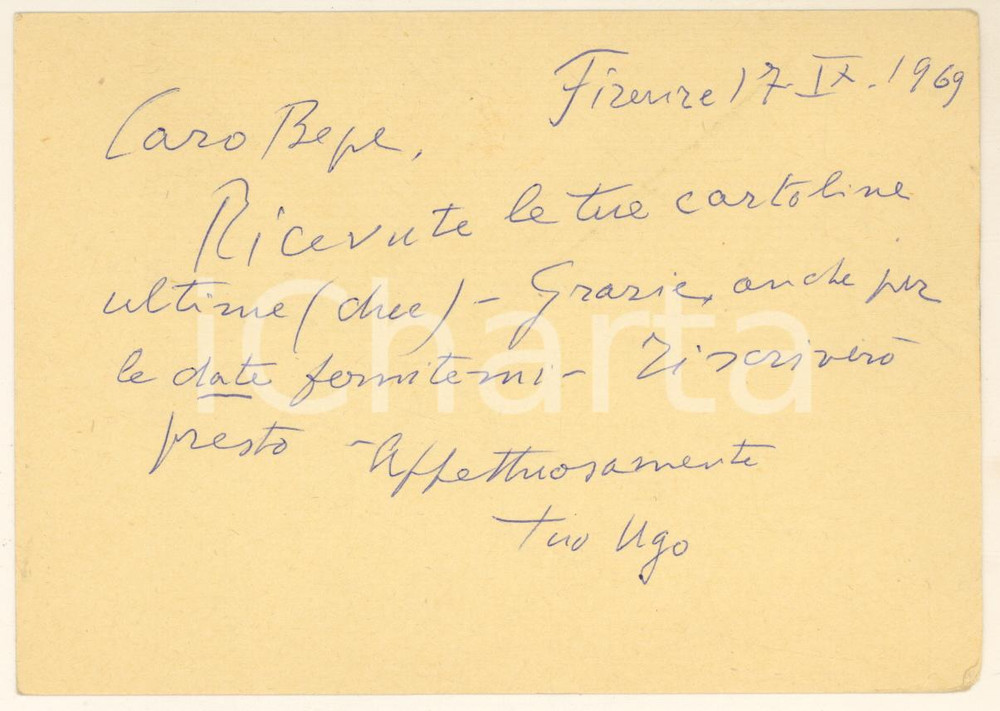 Firenze 17-IX-1969
Caro Bepe,
Ricevute le tue cartoline
ultime (due) - Grazie, anche per
le date fornitemi - Ti scriverò
presto - Affettuosamente
tuo Ugo
iCharta